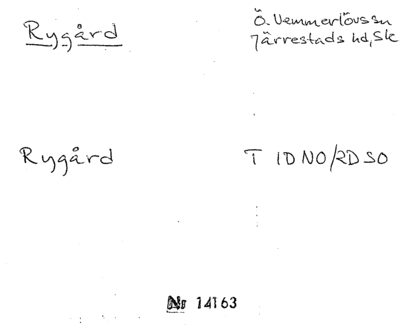 Rygård
Ö. Vemmerlövs sn
Järrestads hd, Sk
Rygård
T 1D NO/2D SO
Nr 14163